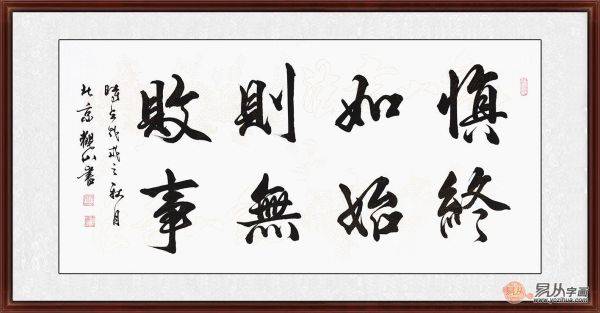 慎終
如始
則無
敗事
時在戊戌之秋月
北京觀山書
易从字画
www.yczihua.com